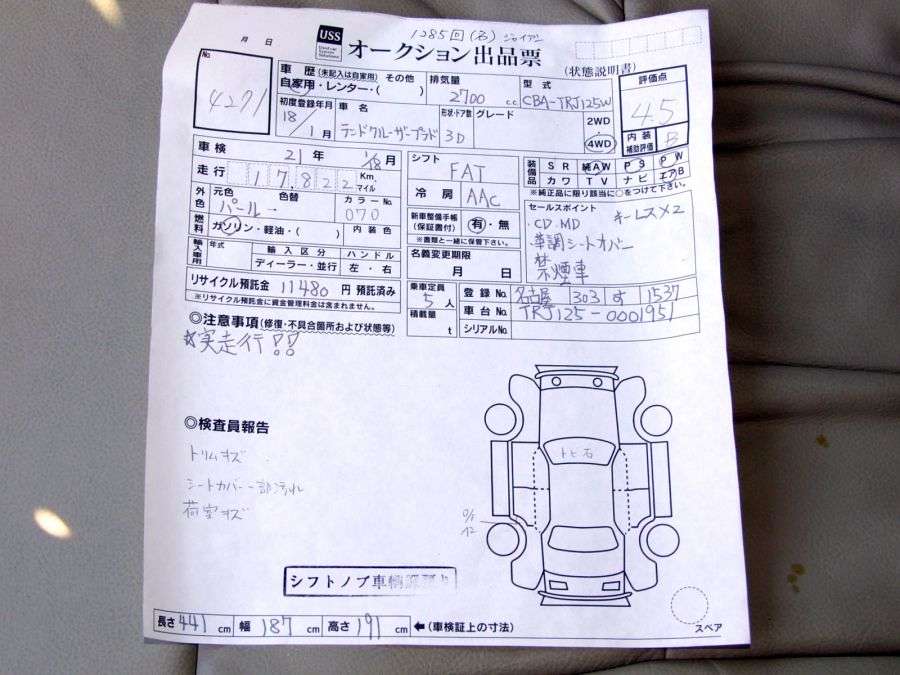 1285回(名) ジャイアン
月 日
USS
Used car System Solutions
オークション出品票
(状態説明書)
No.
4271
車歴(未記入は自家用) その他
自家用・レンター・( )
排気量
2700 c.c
型式
CBA-TRJ125W
評価点
4.5
内装補助評価
B
初度登録年月
18/1月
車名
ランドクルーザープラド
形状・ドア数
3D
グレード
2WD
・
4WD
車検 21年 1/18月
シフト
FAT
装備品
SR 純AW PS PW
カワ TV ナビ エアB
※純正品に限り該当に○をつけて下さい。
走行 17,822 Km マイル
冷房
AAC
外色
元色 色替
パール
カラーNo.
070
新車整備手帳
(保証書付)
有・無
※書類と一緒に保管下さい。
セールスポイント
・CD.MD キーレス×2
・革調シートカバー
禁煙車
燃料 ガソリン・軽油・( ) 内装色
輸入車用 年式 輸入区分 ハンドル
ディーラー・並行 左・右
名義変更期限
月 日
リサイクル預託金 11480 円 預託済み
※リサイクル預託金に資金管理料金は含まれません。
乗車定員
5人
積載量
t
登録No. 名古屋 303 す 1537
車台No. TRJ125-0001951
シリアルNo.
◎注意事項(修復・不具合箇所および状態等)
☆実走行!!
◎検査員報告
トリムキズ
シートカバー一部汚れ
荷室キズ
トビ石
シフトノブ車輌
長さ 441 cm 幅 187 cm 高さ 191 cm ←(車検証上の寸法)
スペア